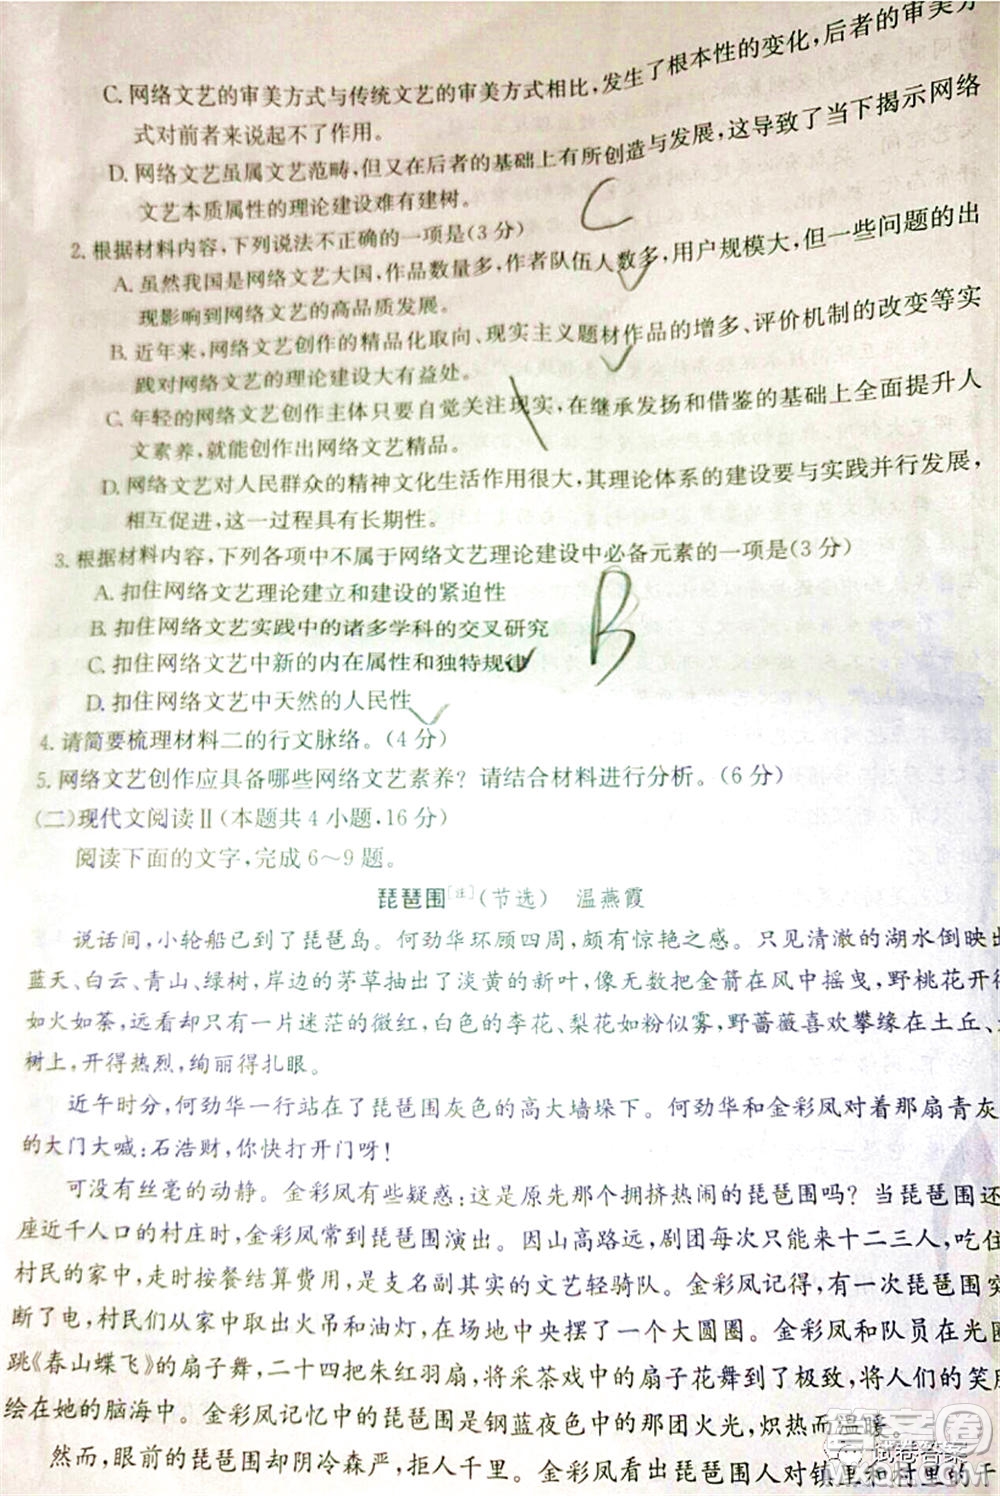 C. 网络文艺的审美方式与传统文艺的审美方式相比,发生了根本性的变化,后者的审美方
式对前者来说起不了作用。
D. 网络文艺虽属文艺范畴,但又在后者的基础上有所创造与发展,这导致了当下揭示网络
文艺本质属性的理论建设难有建树。
C
2. 根据材料内容,下列说法不正确的一项是(3分)
A. 虽然我国是网络文艺大国,作品数量多,作者队伍人数多,用户规模大,但一些问题的出
现影响到网络文艺的高品质发展。
B. 近年来,网络文艺创作的精品化取向、现实主义题材作品的增多、评价机制的改变等实
践对网络文艺的理论建设大有益处。
C. 年轻的网络文艺创作主体只要自觉关注现实,在继承发扬和借鉴的基础上全面提升人
文素养,就能创作出网络文艺精品。
D. 网络文艺对人民群众的精神文化生活作用很大,其理论体系的建设要与实践并行发展,
相互促进,这一过程具有长期性。
3. 根据材料内容,下列各项中不属于网络文艺理论建设中必备元素的一项是(3分)
A. 扣住网络文艺理论建立和建设的紧迫性
B. 扣住网络文艺实践中的诸多学科的交叉研究
B
C. 扣住网络文艺中新的内在属性和独特规律
D. 扣住网络文艺中天然的人民性
4. 请简要梳理材料二的行文脉络。(4分)
5. 网络文艺创作应具备哪些网络文艺素养?请结合材料进行分析。(6分)
(二)现代文阅读Ⅱ(本题共4小题,16分)
阅读下面的文字,完成6~9题。
琵琶围[注](节选) 温燕霞
说话间,小轮船已到了琵琶岛。何劲华环顾四周,颇有惊艳之感。只见清澈的湖水倒映出
蓝天、白云、青山、绿树,岸边的茅草抽出了淡黄的新叶,像无数把金箭在风中摇曳,野桃花开得
如火如荼,远看却只有一片迷茫的微红,白色的李花、梨花如粉似雾,野蔷薇喜欢攀缘在土丘、
树上,开得热烈,绚丽得扎眼。
近午时分,何劲华一行站在了琵琶围灰色的高大墙垛下。何劲华和金彩凤对着那扇青灰
的大门大喊:石浩财,你快打开门呀!
可没有丝毫的动静。金彩凤有些疑惑:这是原先那个拥挤热闹的琵琶围吗?当琵琶围还
座近千人口的村庄时,金彩凤常到琵琶围演出。因山高路远,剧团每次只能来十二三人,吃住
村民的家中,走时按餐结算费用,是支名副其实的文艺轻骑队。金彩凤记得,有一次琵琶围突
断了电,村民们从家中取出火吊和油灯,在场地中央摆了一个大圆圈。金彩凤和队员在光圈
跳《春山蝶飞》的扇子舞,二十四把朱红羽扇,将采茶戏中的扇子花舞到了极致,将人们的笑脸
绘在她的脑海中。金彩凤记忆中的琵琶围是钢蓝夜色中的那团火光,炽热而温暖。
然而,眼前的琵琶围却阴冷森严,拒人千里。金彩凤看出琵琶围人对镇里和村里的干
答案卷
试卷答案